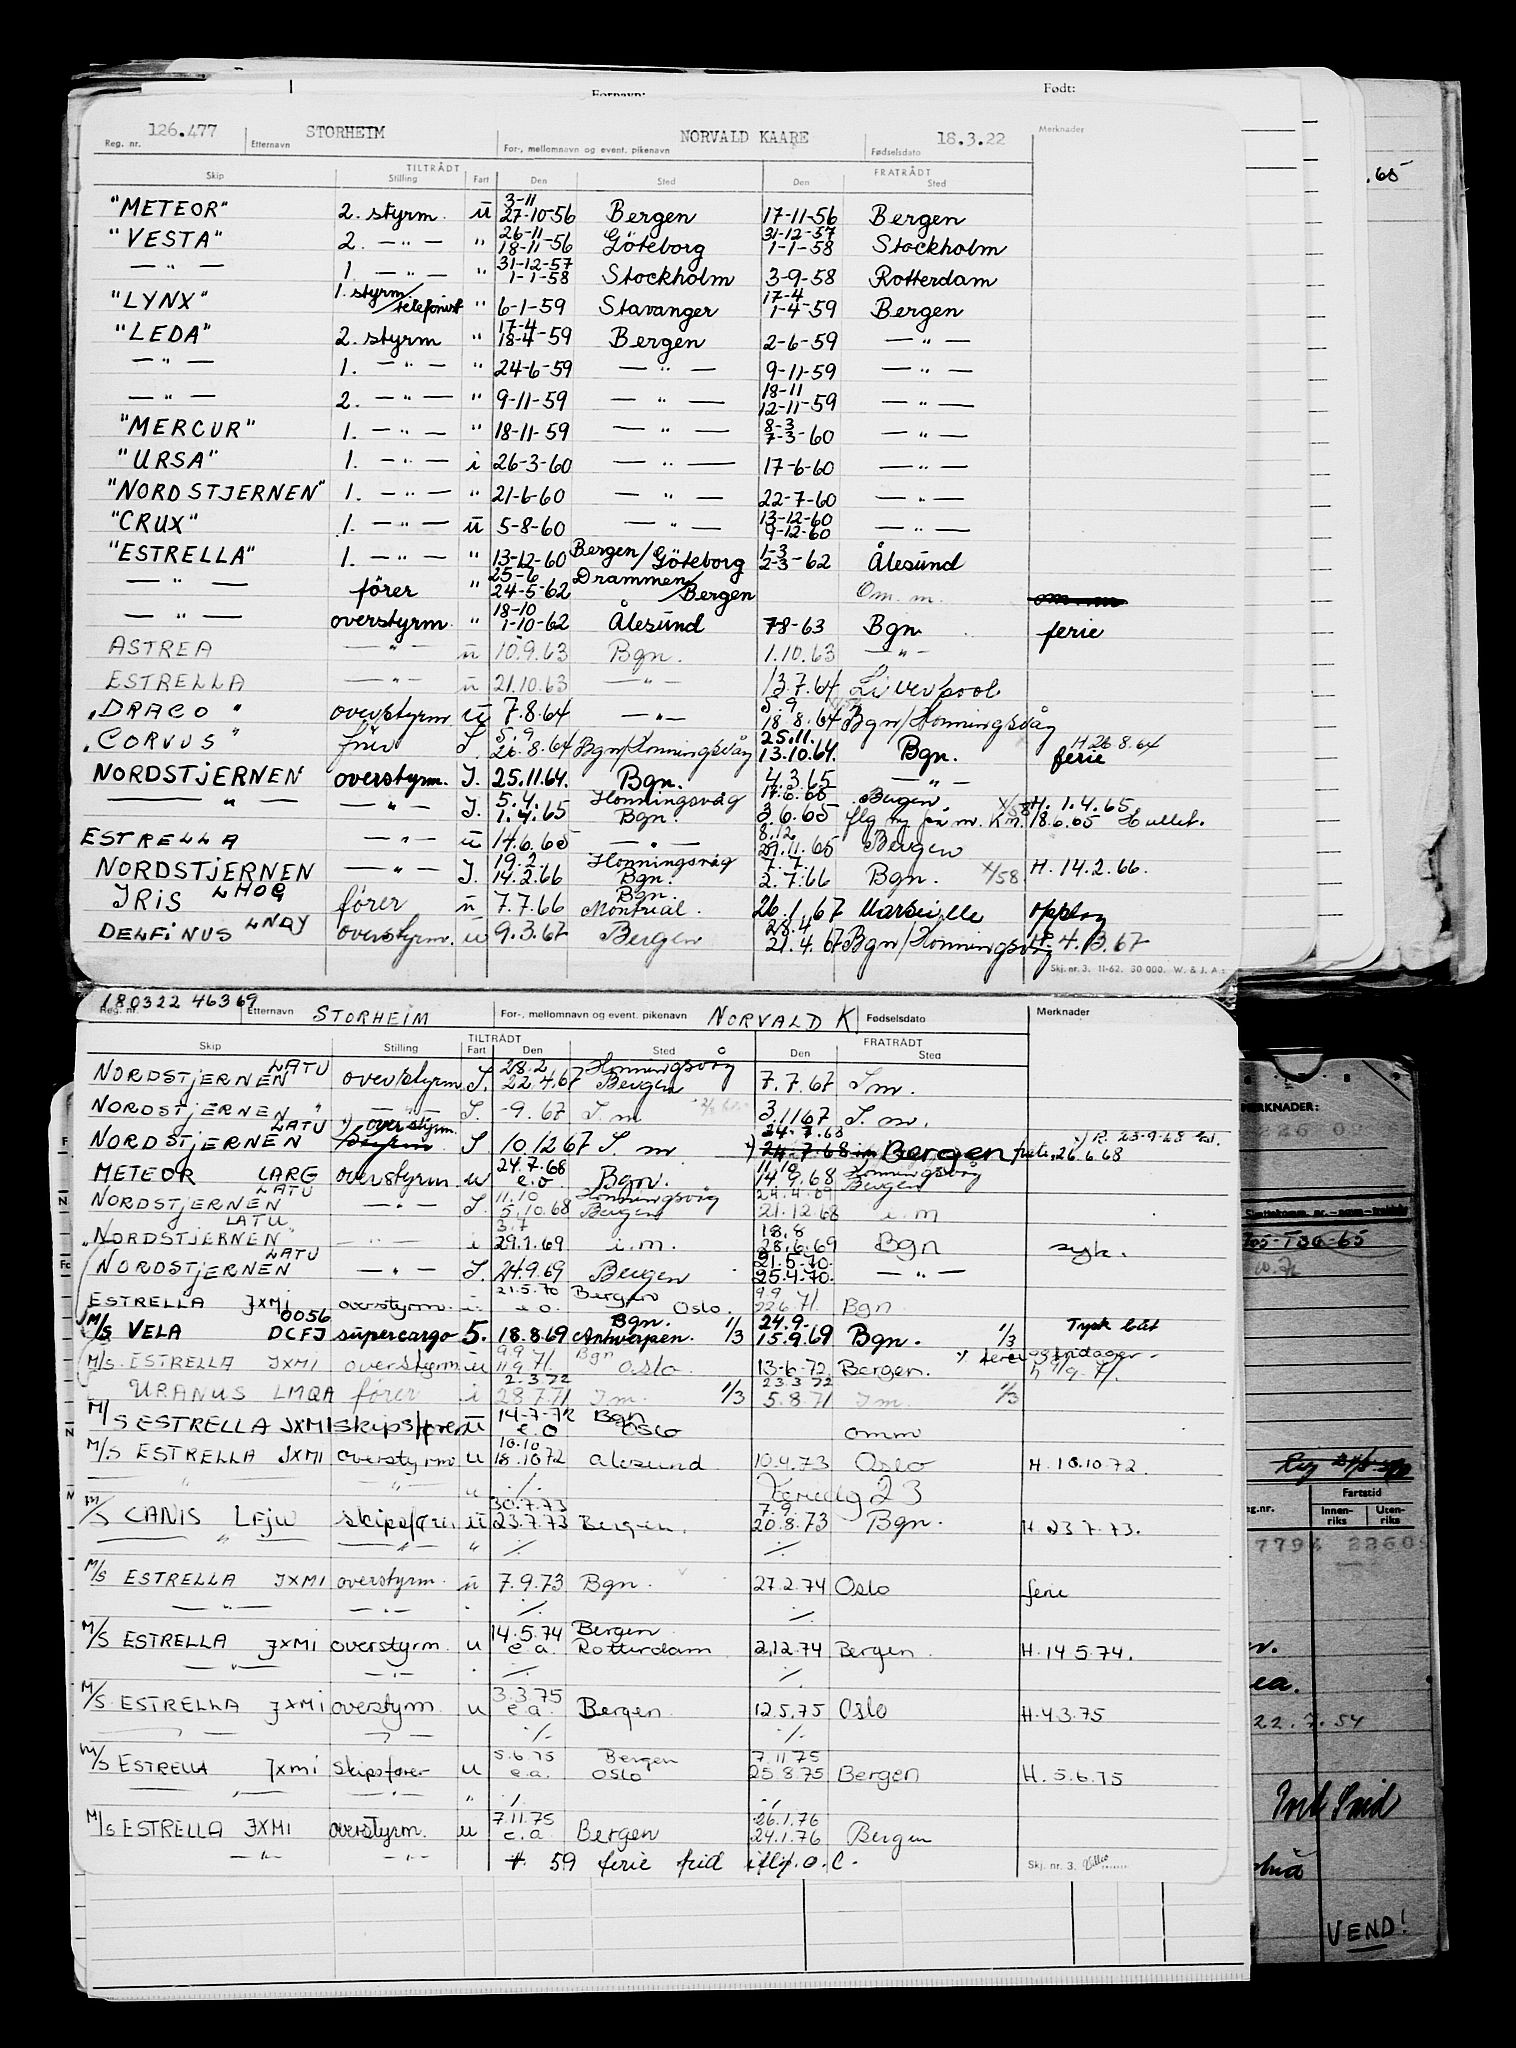 Fornavn: Født:
126.477 STORHEIM NORVALD KAARE 18.3.22 Merknader
Reg. nr. Etternavn For-, mellomnavn og event. pikenavn Fødselsdato
TILTRÅDT FRATRÅDT
Skip Stilling Fart Den Sted Den Sted
3-11
"METEOR" 2. styrm. u 27-10-56 Bergen 17-11-56 Bergen
26-11 31-12-57
"VESTA" 2. — " — " 18-11-56 Göteborg 1-1-58 Stockholm
31-12-57
— " — 1. — " — " 1-1-58 Stockholm 3-9-58 Rotterdam
17-4
"LYNX" 1. styrm/telefonist " 6-1-59 Stavanger 1-4-59 Bergen
17-4
"LEDA" 2. styrm " 18-4-59 Bergen 2-6-59 — " —
— " — 1. — " — " 24-6-59 — " — 9-11-59 — " —
18-11
— " — 2. — " — " 9-11-59 — " — 12-11-59 — " —
8-3
"MERCUR" 1. — " — " 18-11-59 — " — 7-3-60 — " —
"URSA" 1. — " — i 26-3-60 — " — 17-6-60 — " —
"NORDSTJERNEN" 1. — " — " 21-6-60 — " — 22-7-60 — " —
13-12-60
"CRUX" 1. — " — u 5-8-60 — " — 9-12-60 — " —
1-3
"ESTRELLA" 1. — " — " 13-12-60 Bergen/Göteborg 2-3-62 Ålesund
25-6 Drammen
— " — fører " 24-5-62 /Bergen Om. m. om m
18-10
— " — overstyrm. " 1-10-62 Ålesund 7-8-63 Bgn. ferie
ASTREA — " — u 10.9.63 Bgn. 1.10.63 — " —
ESTRELLA — " — u 21.10.63 — " — 13.7.64 Liverpool
5.9
"DRACO" overstyrm u 7.8.64 — " — 18.8.64 Bgn/Honningsvåg
5.9 25.11. H 26 8.64
"CORVUS" fører I. 26.8.64 Bgn/Honningsvåg 13.10.64. Bgn. ferie
NORDSTJERNEN overstyrm. I. 25.11.64. Bgn. 4.3.65 — " —
5.4. Honningsvåg 17.6.65 Bergen H. 1.4.65
— " — — " — I. 1.4.65 Bgn. 3.6.65 18.6.65
8.12
ESTRELLA — " — u 14.6.65 — " — 29.11.65 Bergen
19.2. Honningsvåg 7.7.
NORDSTJERNEN — " — I. 14.2.66 Bgn. 2.7.66 Bgn. X/58 H. 14.2.66.
Bgn.
IRIS LHOG fører u 7.7.66 Montreal. 26.1.67 Marseille opplag
28.4
DELFINUS LNQY overstyrm. u 9.3.67 Bergen 21.4.67 Bgn/Honningsvåg
Skj. nr. 3. 11-62. 30 000. W. & J. A.:
180322 46369
Reg. nr. Etternavn STORHEIM For-, mellomnavn og event. pikenavn NORVALD K. Fødselsdato Merknader
TILTRÅDT FRATRÅDT
Skip Stilling Fart Den Sted Den Sted
28.2 Honningsvåg
NORDSTJERNEN LATU overstyrm I. 22.4.67 Bergen 7.7.67 I m.
NORDSTJERNEN " — " — I. -9.67 I m 3.1167 I m.
overstyrm. 24.7.68
NORDSTJERNEN LATU styrm I 10.1267 I m 24.7.68 im Bergen 26.6.68
24.7.68 11.10 Honningsvåg
METEOR LARG overstyrm u e.o. Bgn. 14.9.68 Bergen
11.10 Honningsvåg 24.4.69
NORDSTJERNEN LATU — " — I. 5.10.68 Bergen 21.12.68 i.m
3.7 18.8
"NORDSTJERNEN" LATU — " — i 29.1.69 i.m. 28.6.69 Bgn syk.
21.5.70.
NORDSTJERNEN LATU — " — I. 24.9.69 Bergen 25.4.70. — " —
21.5.70 Bergen 9.9
ESTRELLA JXMI overstyrm. e.o. Oslo. 22.6.71. Bgn
0056 Bgn. 24.9.
M/S VELA DCFJ supercargo 5. 18.8.69 Antwerpen. 1/3 15.9.69 Bgn. 1/3 Tysk båt
9.9.71. Bgn
M/S. ESTRELLA JXMI overstyrm u 11.9.71. Oslo 13-6-72 Bergen.
2.3.72 23.3.72
URANUS LMQA fører i 28.7.71 Im. 1/3 5.8.71 Im. 1/3
14-7-72 Bgn
M/S ESTRELLA JXMI skipsfører u e.o Oslo omm
10.10
M/S ESTRELLA JXMI overstyrm u 18.1072 Ålesund 10.4.73 Oslo H. 10.10.72.
" " u ./.
30.7.73 7.9.
M/S CANIS LFJW skipsfører u 23.7.73 Bergen. 20.8.73 Bgn. H. 23.7.73.
— " — — " — " ./. ./.
M/S ESTRELLA JXMI overstyrm. u 7.9.73 Bgn. 27.2.74 Oslo ferie
— " — — " — ./. ./.
14.5.74 Bergen
M/S ESTRELLA JXMI overstyrm. u e.a. Rotterdam 2.12.74 Bergen H. 14 5.74.
— " — — " — ./. ./.
3.3.75
M/S ESTRELLA JXMI overstyrm. u e.a. Bergen 12.5.75 Oslo H. 4.3.75
— " — — " — ./. ./.
5.6.75 Bergen 7.11.75
M/S ESTRELLA JXMI skipsfører u e.a. Oslo 25.8.75 Bergen H. 5.6.75
— " — — " — " ./. ./.
7.11.75 26.1.76
M/S ESTRELLA JXMI overstyrm. u e.a Bergen 24.1.76 Bergen
— " — — " — 59 ferie frid
Skj. nr. 3.
.65
MERKNADER:
22.7.54
Fartstid
Innenriks Utenriks
VEND!